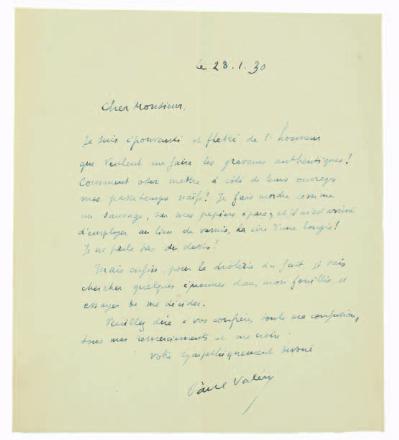 le 28.1.30
Cher Monsieur,
Je suis épouvanté et flatté de l'honneur
que veulent me faire les graveurs authentiques !
Comment oser mettre à côté de leurs ouvrages
mes passetemps naïfs ! Je fais mordre comme
un sauvage, sur mes papiers épars, et il m'est arrivé
d'employer au lieu de vernis, la cire d'une bougie !
Je ne parle pas du dessin !
Mais enfin, pour la drôlerie du fait, je vais
chercher quelques épreuves dans mon fouillis, et
essayer de me décider.
Veuillez dire à vos confrères toute ma confusion,
tous mes remerciements et me croire
votre sympathiquement dévoué
Paul Valéry